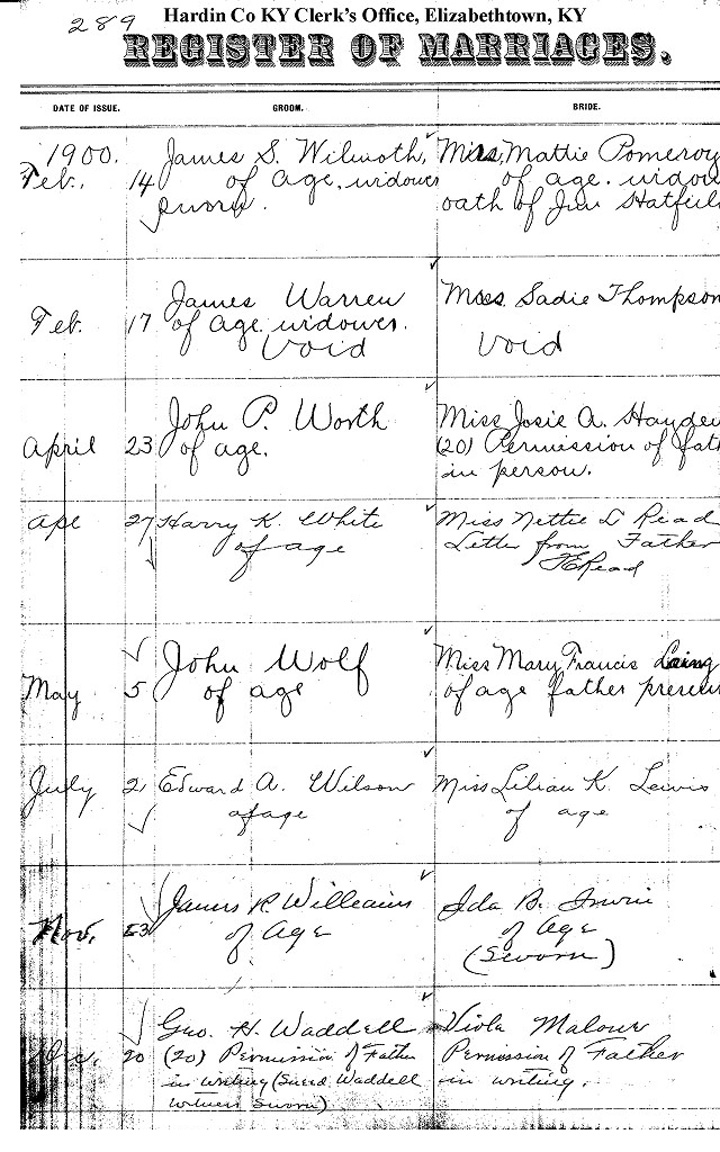 289
Hardin Co KY Clerk's Office, Elizabethtown, KY
REGISTER OF MARRIAGES.
DATE OF ISSUE. GROOM. BRIDE.
1900.
Feb. 14 James S. Wilmoth, Mrs. Mattie Pomeroy
of age. widower of age. widow
sworn. oath of Jim Hatfiel
Feb. 17 James Warren Miss Sadie Thompson
of age. widower.
Void Void
April 23 John P. Worth Miss Josie A. Hayde
of age. (20) Permission of fath
in person.
Ape 27 Harry K. White Miss Nettie L Read
of age Letter from Father
Read
May 5 John Wolf Miss Mary Francis Laing
of age of age father presen
July 2 Edward A. Wilson Miss Lilian K. Lewis
of age of age
Nov. James R. Williams Ida B. Irwin
of age of age
(Sworn)
Dec. 20 Geo. H. Waddell Viola Malour
(20) Permission of Father Permission of Father
in writing (Sneed Waddell in writing.
witness sworn)